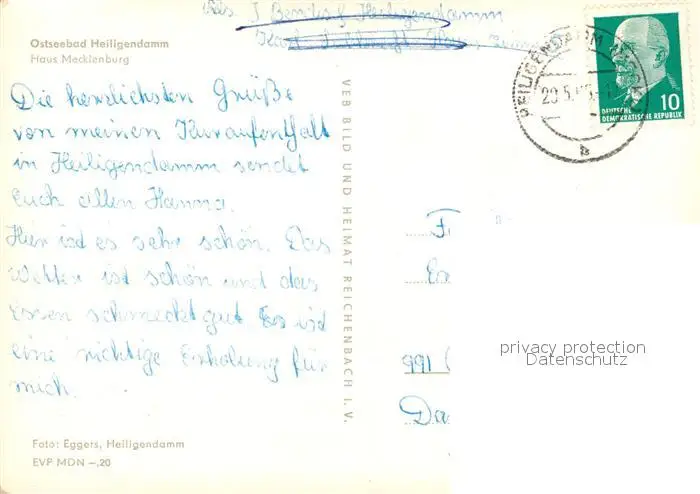 Ostseebad Heiligendamm
Haus Mecklenburg
Abs. J. Heiligendamm
Karl
Die herzlichsten Grüße
von meinem Kuraufenthalt
in Heiligendamm sendet
Euch allen Hanna.
Hier ist es sehr schön. Das
Wetter ist schön und das
Essen schmeckt gut. Es ist
eine richtige Erholung für
mich.
Foto: Eggers, Heiligendamm
EVP MDN –,20
VEB BILD UND HEIMAT REICHENBACH I. V.
HEILIGENDAMM
20.5.
b
10
DEUTSCHE
DEMOKRATISCHE REPUBLIK
F
991
Da
privacy protection
Datenschutz